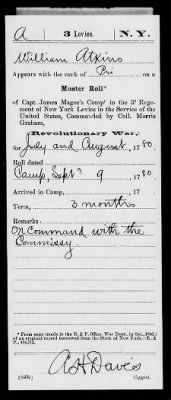 A | 3 Levies. | N. Y.
William Atkins
Appears with the rank of Pri on a
Muster Roll*
of Capt. James Magee's Comp' in the 3ᵈ Regement of New York Levies in the Service of the United States, Commanded by Coll. Morris Graham,
(Revolutionary War,)
for July and August, 1780.
Roll dated
Camp, Septʳ 9, 1780.
Arrived in Camp, , 17
Term, 3 months
Remarks:
On command with the
Commissy.
* From copy (made in the R. & P. Office, War Dept., in Oct.,
of an original record borrowed from the State of New York.—R. &
P.,
A H Davis
Copyist.